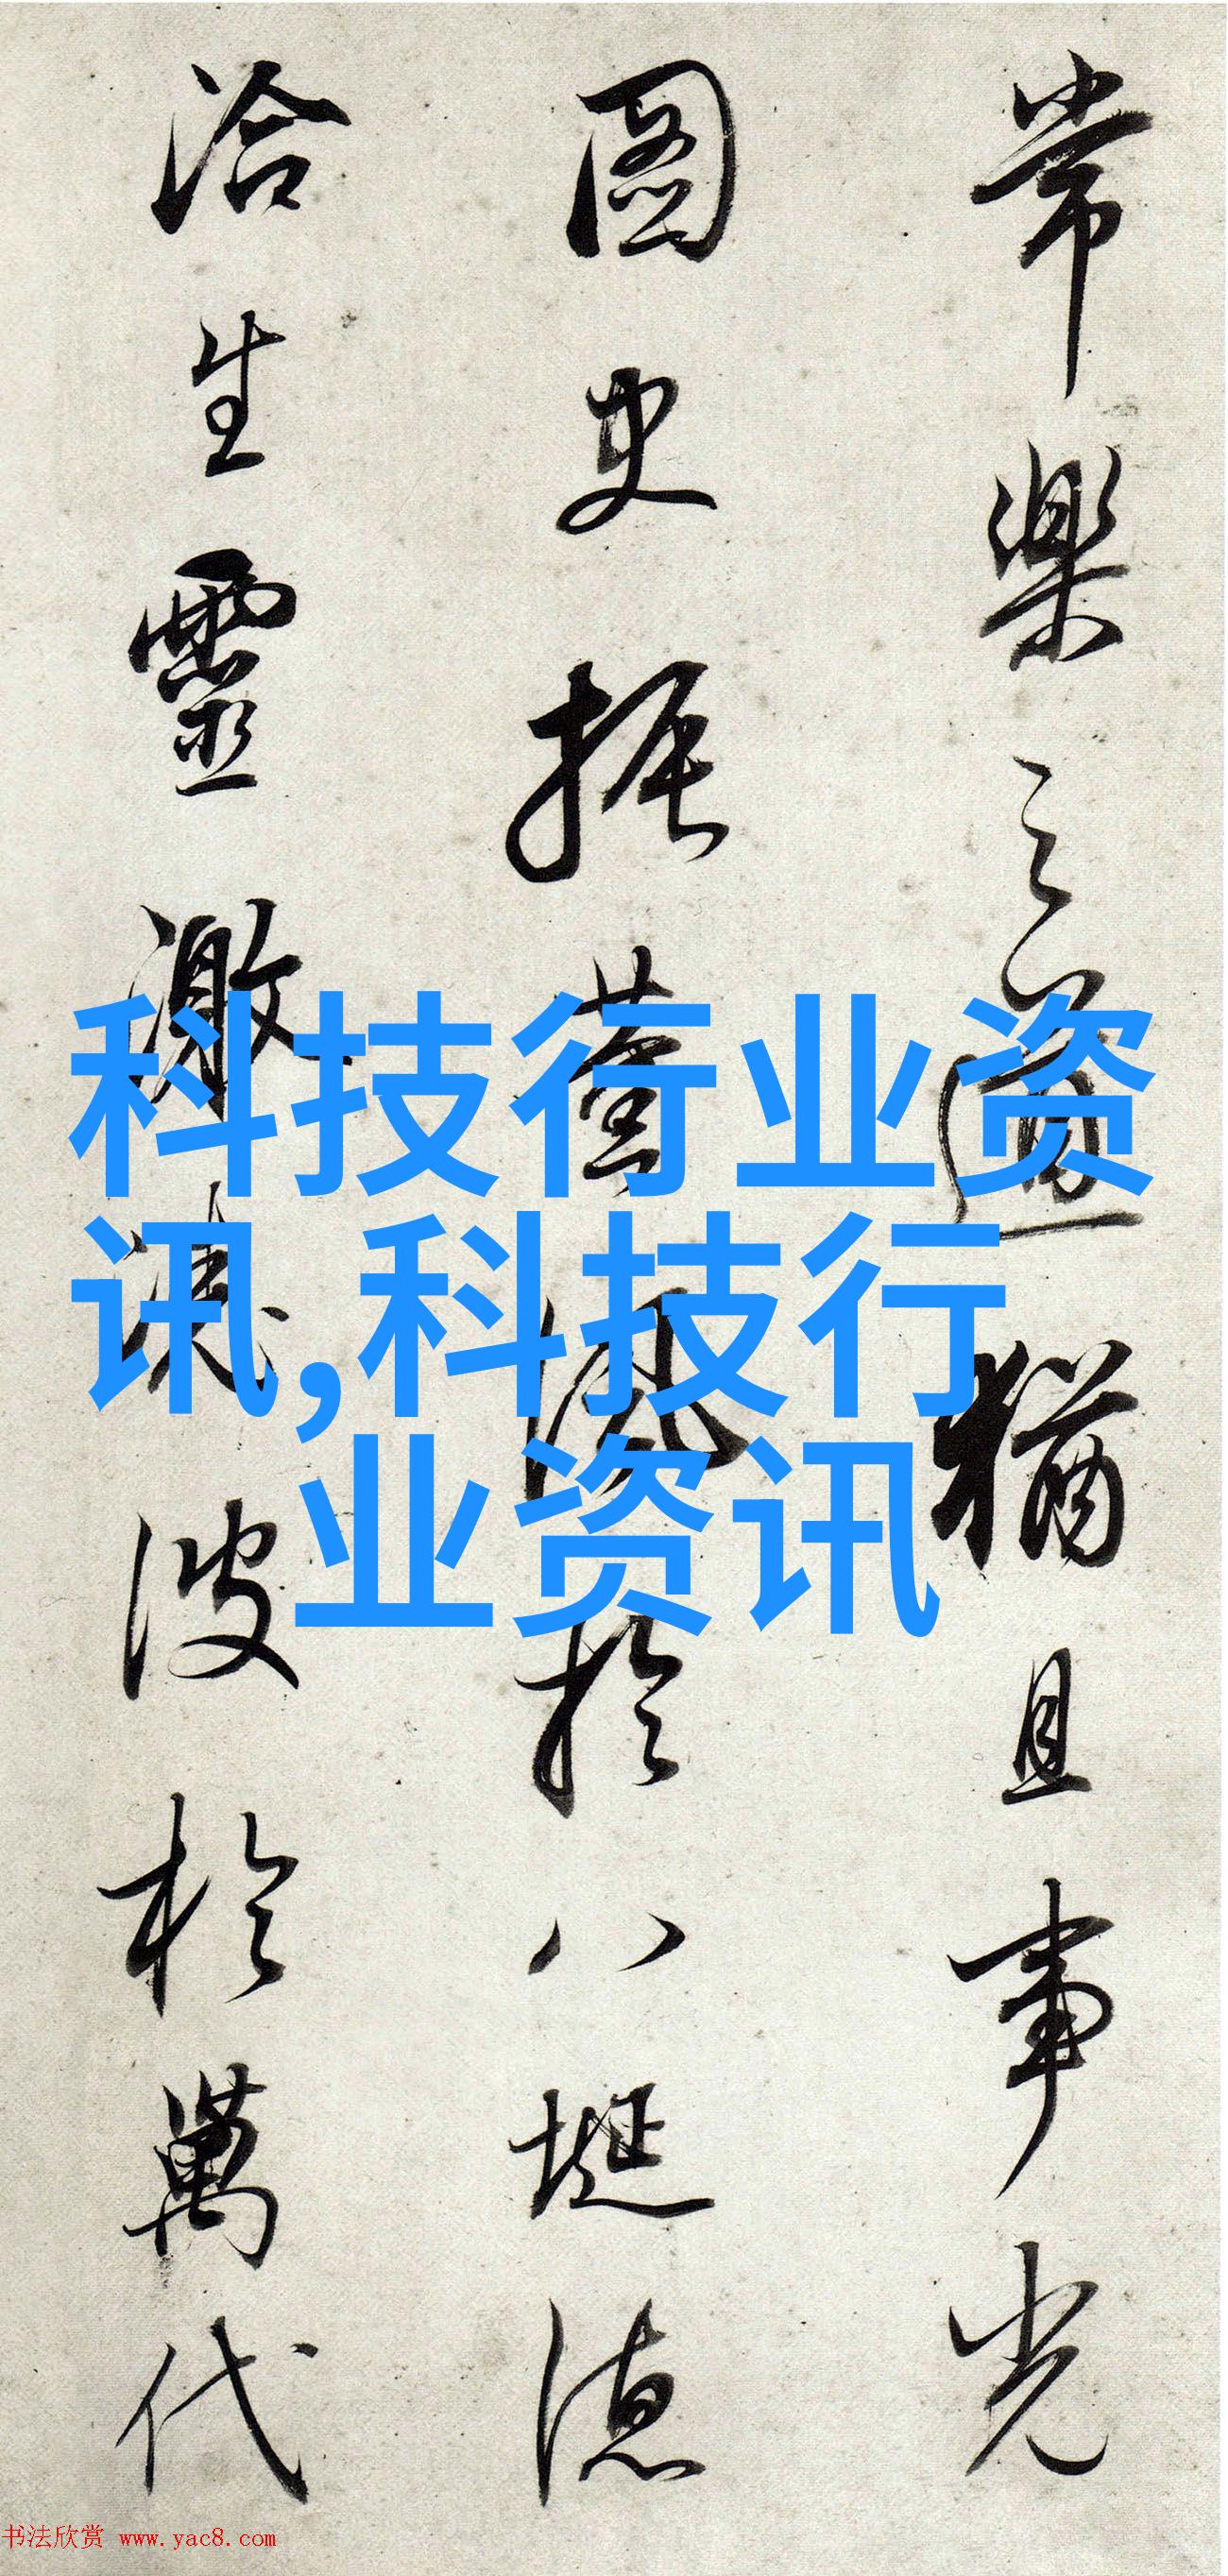 常樂之道猶且事光
圖史振薰風於八埏德
洽生靈激波於萬代
科技行业资
讯,科技行
业资讯
书法欣赏 www.yac8.com